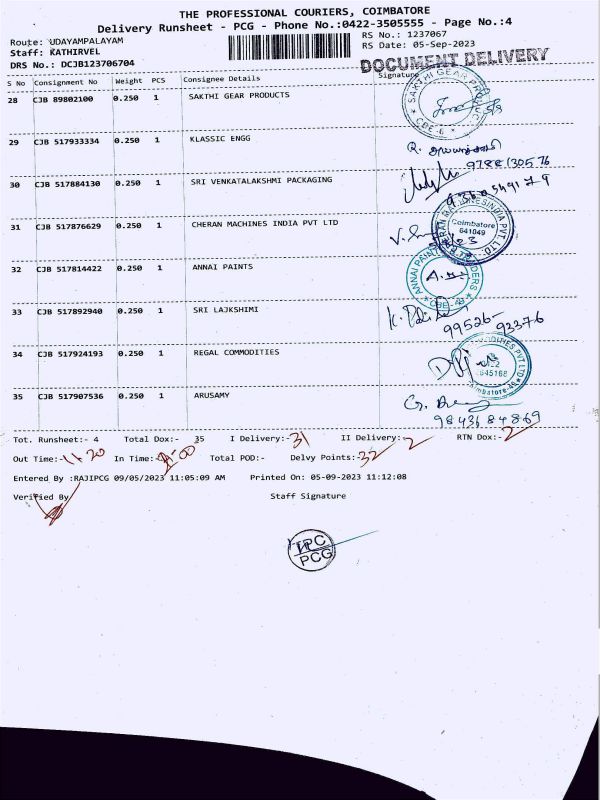 THE PROFESSIONAL COURIERS, COIMBATORE
Delivery Runsheet - PCG - Phone No.:0422-3505555 - Page No.:4
Route: UDAYAMPALAYAM
RS No.: 1237067
Staff: KATHIRVEL
RS Date: 05-Sep-2023
DRS No.: DCJB123706704
DOCUMENT DELIVERY
S No Consignment No Weight PCS Consignee Details Signature
28 CJB 89802100 0.250 1 SAKTHI GEAR PRODUCTS
SAKTHI GEAR PRODUCTS CBE-6
29 CJB 517933334 0.250 1 KLASSIC ENGG
30 CJB 517884130 0.250 1 SRI VENKATALAKSHMI PACKAGING
31 CJB 517876629 0.250 1 CHERAN MACHINES INDIA PVT LTD
Coimbatore
641049
32 CJB 517814422 0.250 1 ANNAI PAINTS
33 CJB 517892940 0.250 1 SRI LAJKSHIMI
99526-93376
34 CJB 517924193 0.250 1 REGAL COMMODITIES
35 CJB 517907536 0.250 1 ARUSAMY
98436 84869
Tot. Runsheet:- 4 Total Dox:- 35 I Delivery:- 31 II Delivery:- 2 RTN Dox:- 2
Out Time:- 11.20 In Time:- Total POD:- Delvy Points:- 32
Entered By :RAJIPCG 09/05/2023 11:05:09 AM Printed On: 05-09-2023 11:12:08
Verified By Staff Signature
TPC
PCG